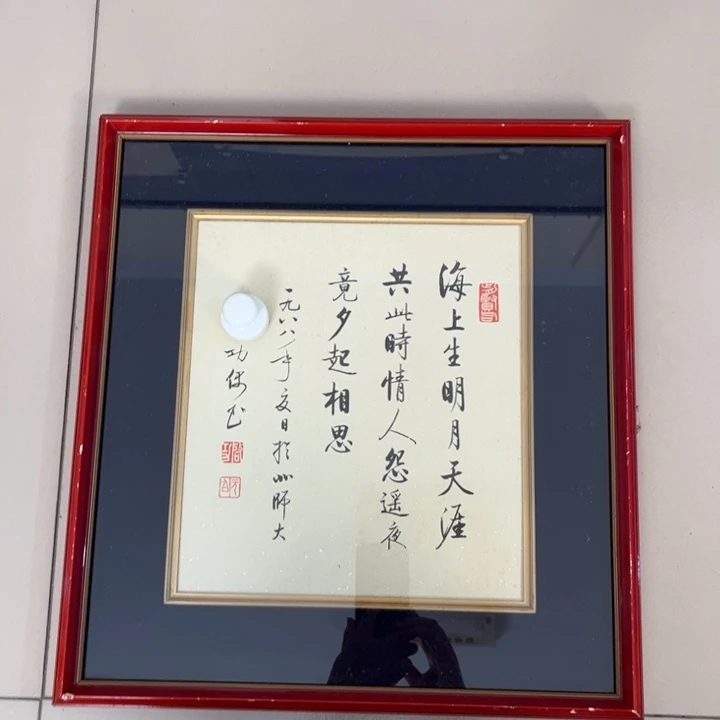 海上生明月天涯
共此時情人怨遥夜
竟夕起相思
一九八八年夏日於北師大
功